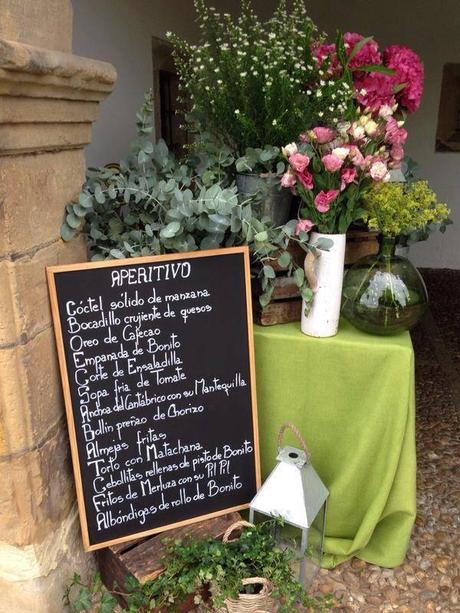 APERITIVO
Cóctel sólido de manzana
Bocadillo crujiente de quesos
Oreo de Cafecao
Empanada de Bonito
Corte de Ensaladilla
Sopa fria de Tomate
Anchoa del Cantábrico con su Mantequilla
Bollin preñao de Chorizo
Almejas fritas
Torto con Matachana
Cebollitas rellenas de pisto de Bonito
Fritos de Merluza con su Pil Pil
Albóndigas de rollo de Bonito